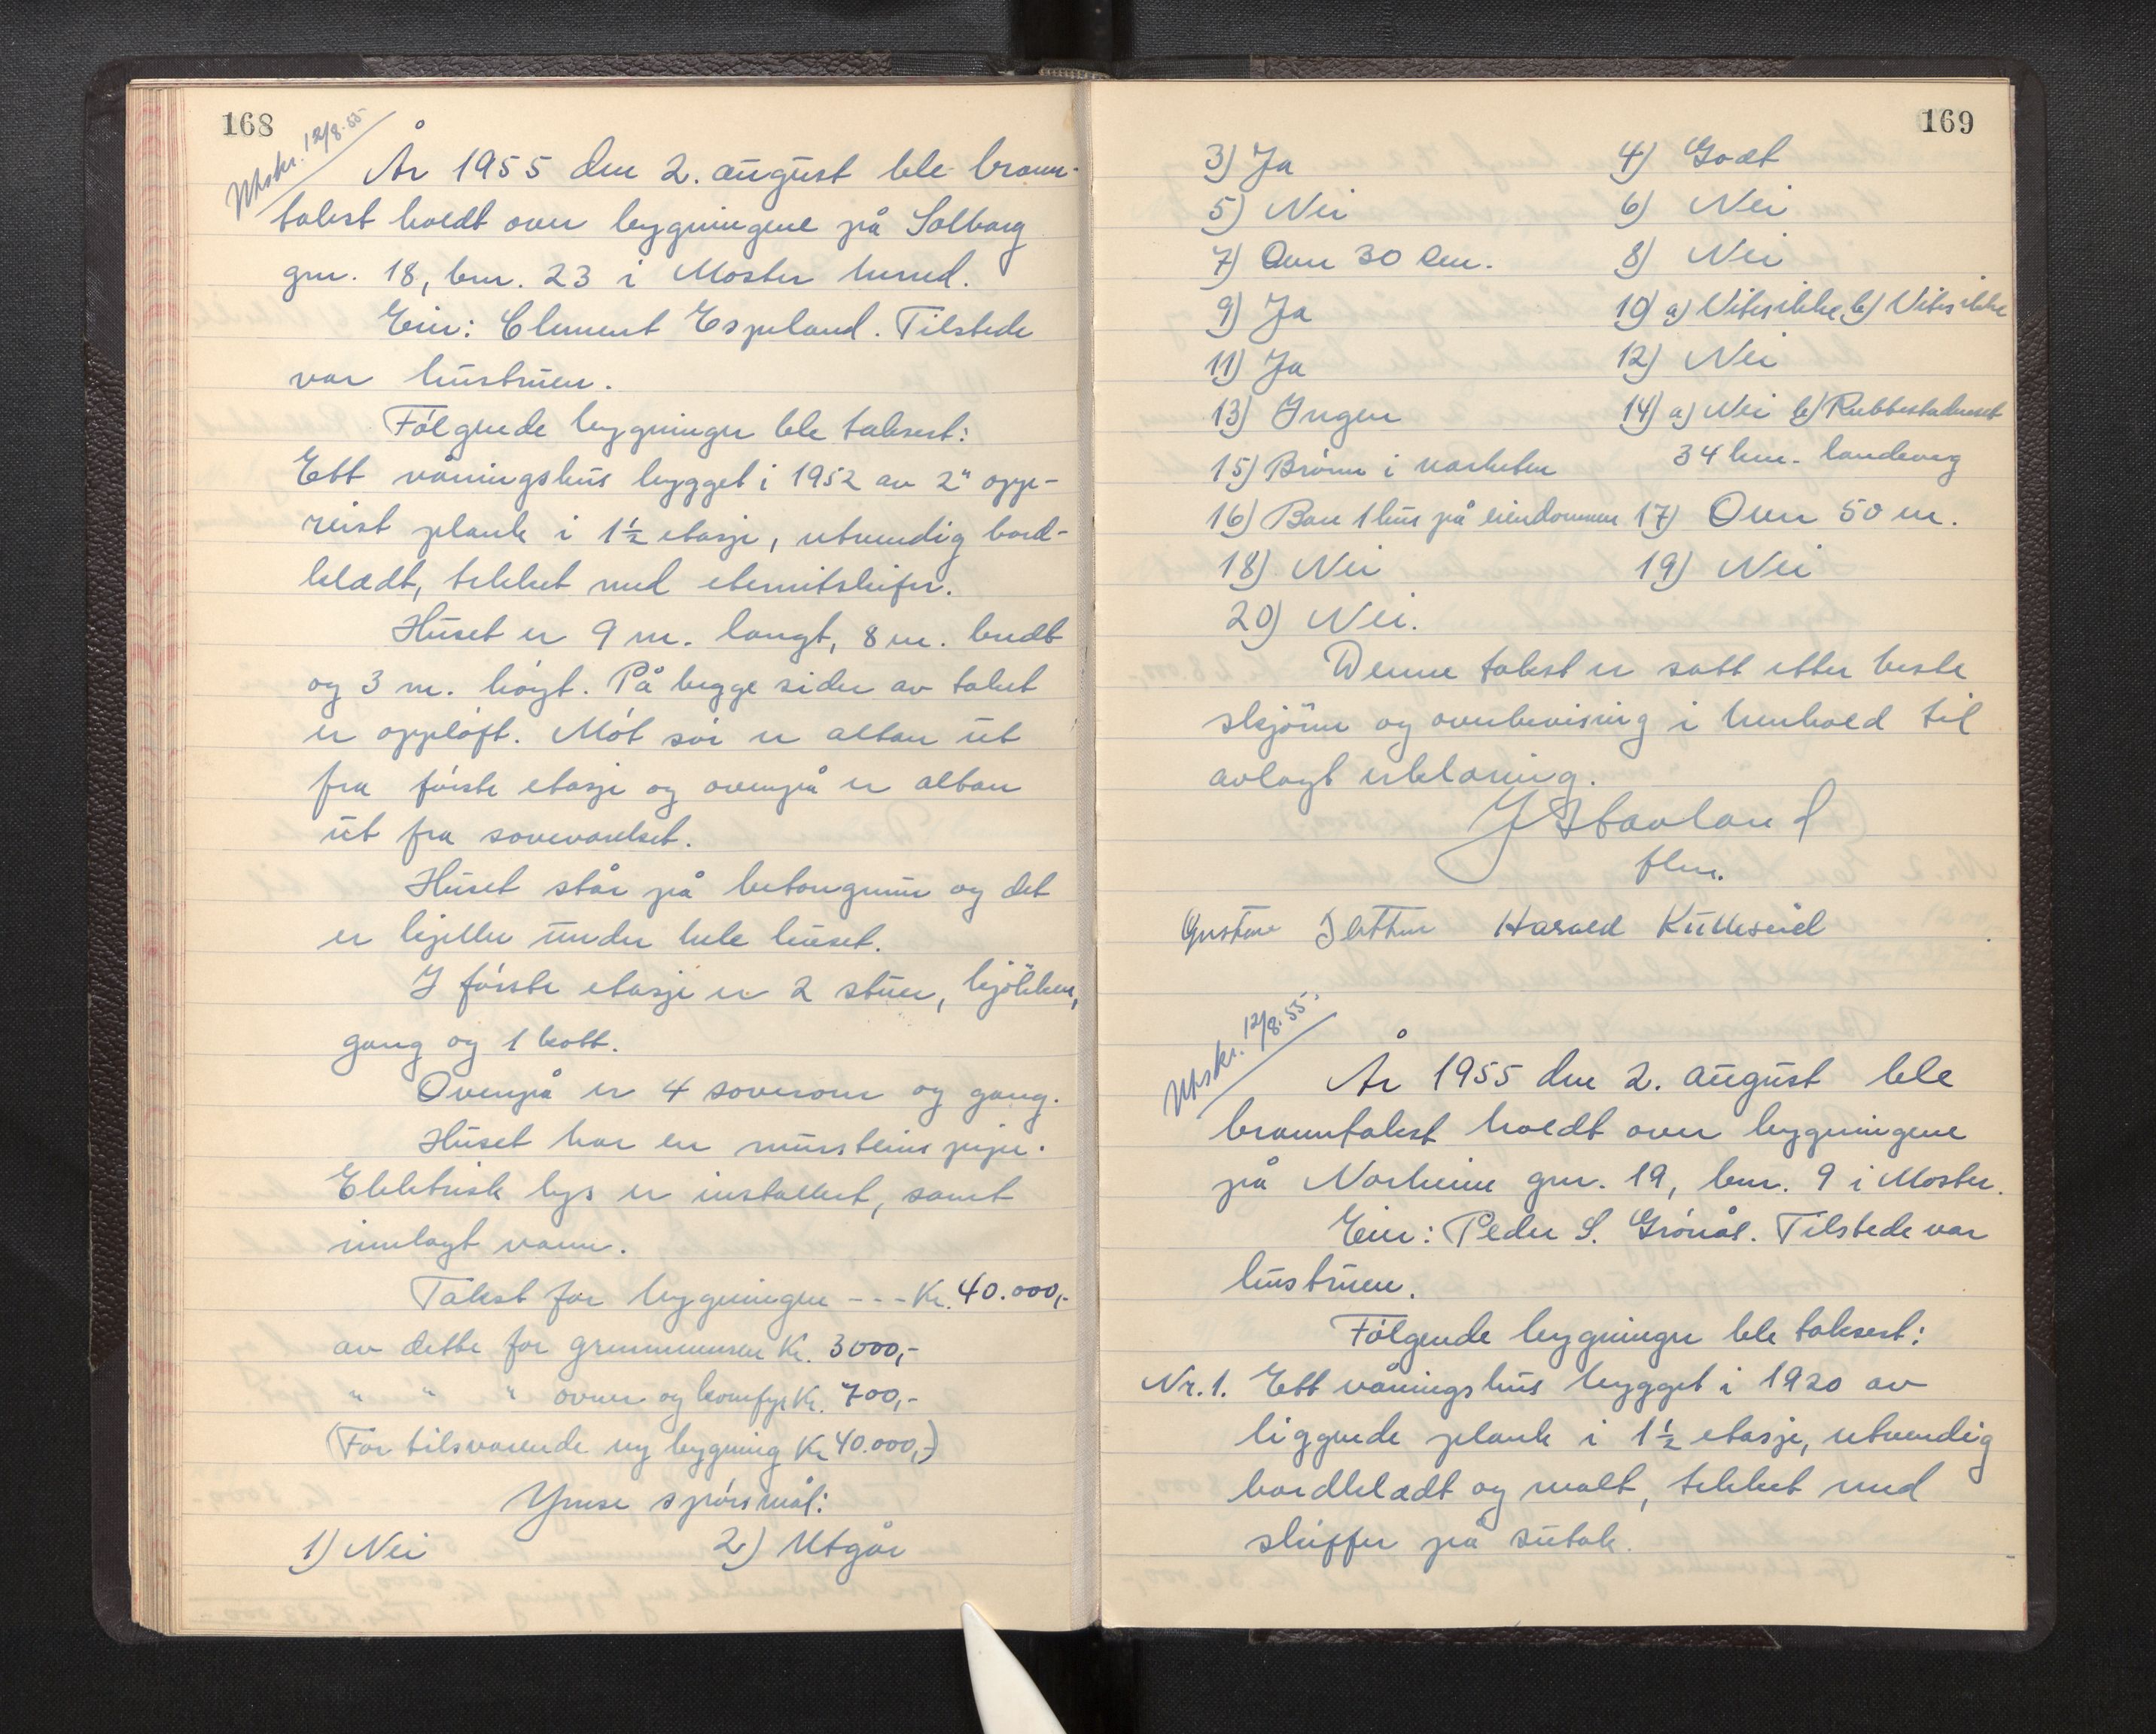 168
Utskr. 12/8.55
År 1955 den 2. august ble brann-
takst holdt over bygningene på Solborg
gnr. 18, bnr. 23 i Moster herred.
Eier: Clement Espeland. Tilstede
var hustruen.
Følgende bygninger ble taksert:
Ett våningshus bygget i 1952 av 2" opp-
reist plank i 1½ etasje, utvendig bord-
kledt, tekket med eternitskifer.
Huset er 9 m. langt, 8 m. bredt
og 3 m. høgt. På begge sider av taket
er oppløft. Mot sør er altan ut
fra første etasje og ovenpå er altan
ut fra soveværelset.
Huset står på betongmur og det
er kjeller under hele huset.
I første etasje er 2 stuer, kjøkken,
gang og 1 kott.
Ovenpå er 4 soverom og gang.
Huset har en mursteins pipe.
Elektrisk lys er installert, samt
innlagt vann.
Takst for bygningen --- Kr. 40.000,-
av dette for grunnmuren Kr. 3000,-
" " " ovner og komfyr Kr. 700,-
(For tilsvarende ny bygning Kr 40.000,-)
Ymse spørsmål:
1) Nei 2) Utgår
169
3) Ja 4) Godt
5) Nei 6) Nei
7) Over 30 cm. 8) Nei
9) Ja 10) a) Vites ikke b) Vites ikke
11) Ja 12) Nei
13) Ingen 14) a) Nei b) Rubbestadneset
34 km. landeveg
15) Brønn i nærheten
16) Bare 1 hus på eiendommen 17) Over 50 m.
18) Nei 19) Nei
20) Nei.
Denne takst er satt etter beste
skjønn og overbevisning i henhold til
avlagt erklæring.
J Stavland
flm.
Gustav Harald Kulleseid
Utskr. 12/8.55.
År 1955 den 2. august ble
branntakst holdt over bygningene
på Norheim gnr. 19, bnr. 9 i Moster.
Eier: Peder S. Grønås. Tilstede var
hustruen.
Følgende bygninger ble taksert:
Nr. 1. Ett våningshus bygget i 1920 av
liggende plank i 1½ etasje, utvendig
bordkledt og malt, tekket med
skiffer på sutak.